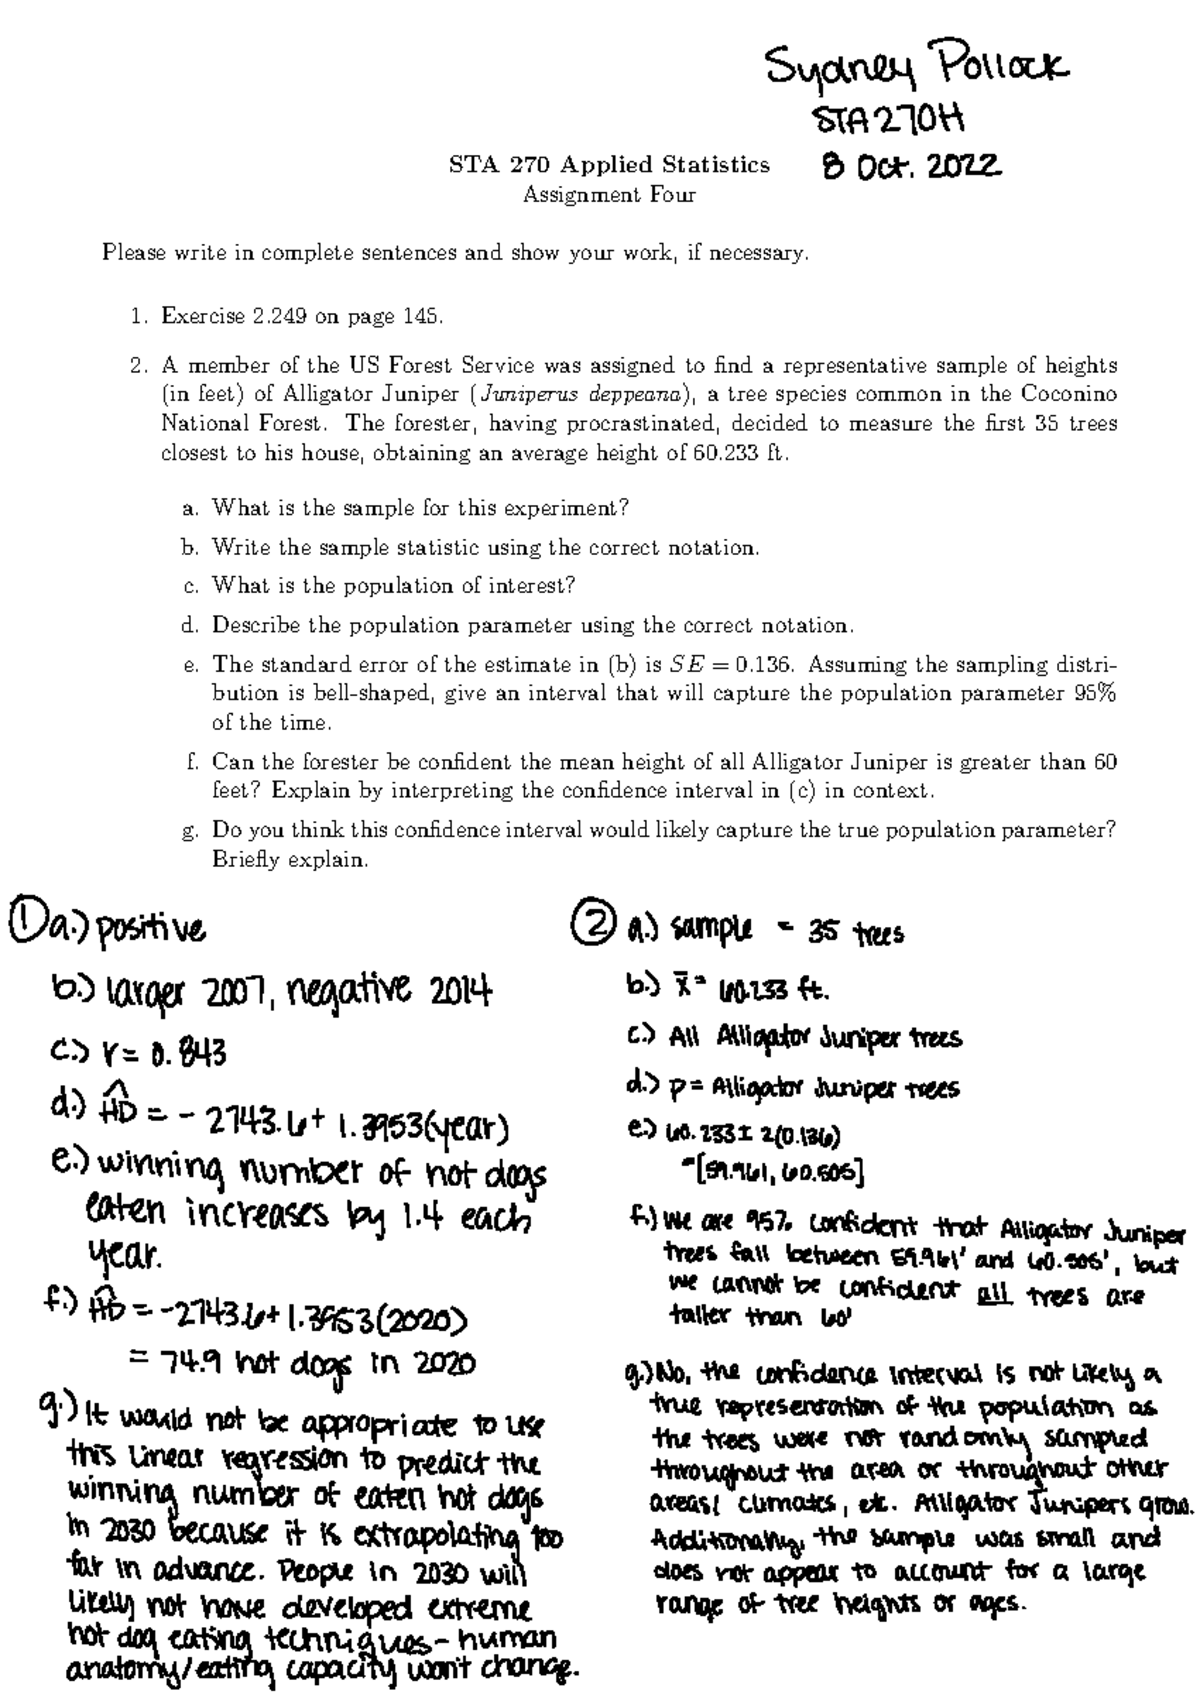 Sydney Pollock
STA270H
8 Oct. 2022
STA 270 Applied Statistics
Assignment Four
Please write in complete sentences and show your work, if necessary.
1. Exercise 2.249 on page 145.
2. A member of the US Forest Service was assigned to find a representative sample of heights
(in feet) of Alligator Juniper (Juniperus deppeana), a tree species common in the Coconino
National Forest. The forester, having procrastinated, decided to measure the first 35 trees
closest to his house, obtaining an average height of 60.233 ft.
a. What is the sample for this experiment?
b. Write the sample statistic using the correct notation.
c. What is the population of interest?
d. Describe the population parameter using the correct notation.
e. The standard error of the estimate in (b) is SE = 0.136. Assuming the sampling distri-
bution is bell-shaped, give an interval that will capture the population parameter 95%
of the time.
f. Can the forester be confident the mean height of all Alligator Juniper is greater than 60
feet? Explain by interpreting the confidence interval in (c) in context.
g. Do you think this confidence interval would likely capture the true population parameter?
Briefly explain.
① a.) positive
b.) larger 2007, negative 2014
c.) r = 0.843
d.) \widehat{HD} = - 2743.6 + 1.3953(year)
e.) winning number of hot dogs
eaten increases by 1.4 each
year.
f.) \widehat{HD} = -2743.6 + 1.3953(2020)
= 74.9 hot dogs in 2020
g.) It would not be appropriate to use
this linear regression to predict the
winning number of eaten hot dogs
in 2030 because it is extrapolating too
far in advance. People in 2030 will
likely not have developed extreme
hot dog eating techniques - human
anatomy/eating capacity won't change.
② a.) sample = 35 trees
b.) x̄ = 60.233 ft.
c.) All Alligator Juniper trees
d.) p = Alligator Juniper trees
e.) 60.233 ± 2(0.136)
= [59.961, 60.505]
f.) We are 95% confident that Alligator Juniper
trees fall between 59.961' and 60.505', but
we cannot be confident all trees are
taller than 60'
g.) No, the confidence interval is not likely a
true representation of the population as
the trees were not randomly sampled
throughout the area or throughout other
areas/ climates, etc. Alligator Junipers grow.
Additionally, the sample was small and
does not appear to account for a large
range of tree heights or ages.